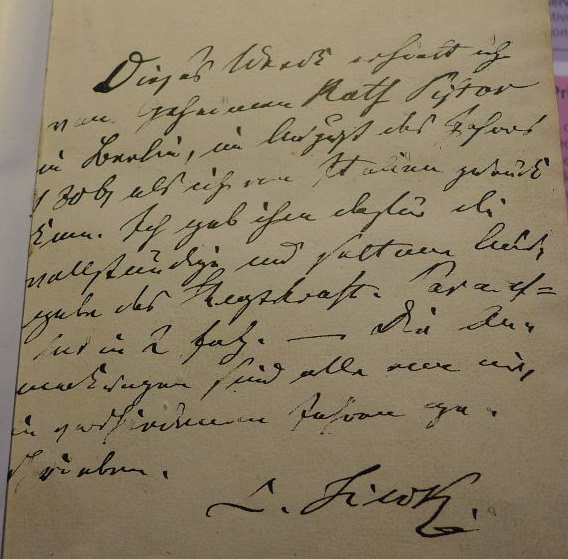 Dieses Werk erhielt ich
vom geheimen Rath Pistor
in Berlin, im August des Jahres
1806, als ich von Italien zurück
kam. Ich gab ihm dafür die
vollständige und seltene Aus-
gabe des Theophrast. Paracel=
sus in 2 fol. — Die An-
merkungen sind alle von mir,
in verschiedenen Jahren ge-
schrieben.
L. Tieck.